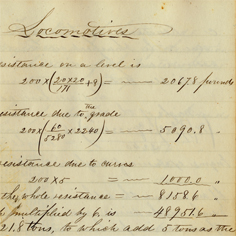 Locomotives
esistance on a level is
200 × (20×20/171 + 8) = — 2067.8 pounds
esistance due to the grade
200 × (60/5280 × 2240) = — 5090.8 "
esistance due to curves
200 × 5 = — 1000.0 "
the whole resistance = — 8158.6 "
multiplied by 6 is — 48951.6 "
21.8 tons, to which add 5 tons as the